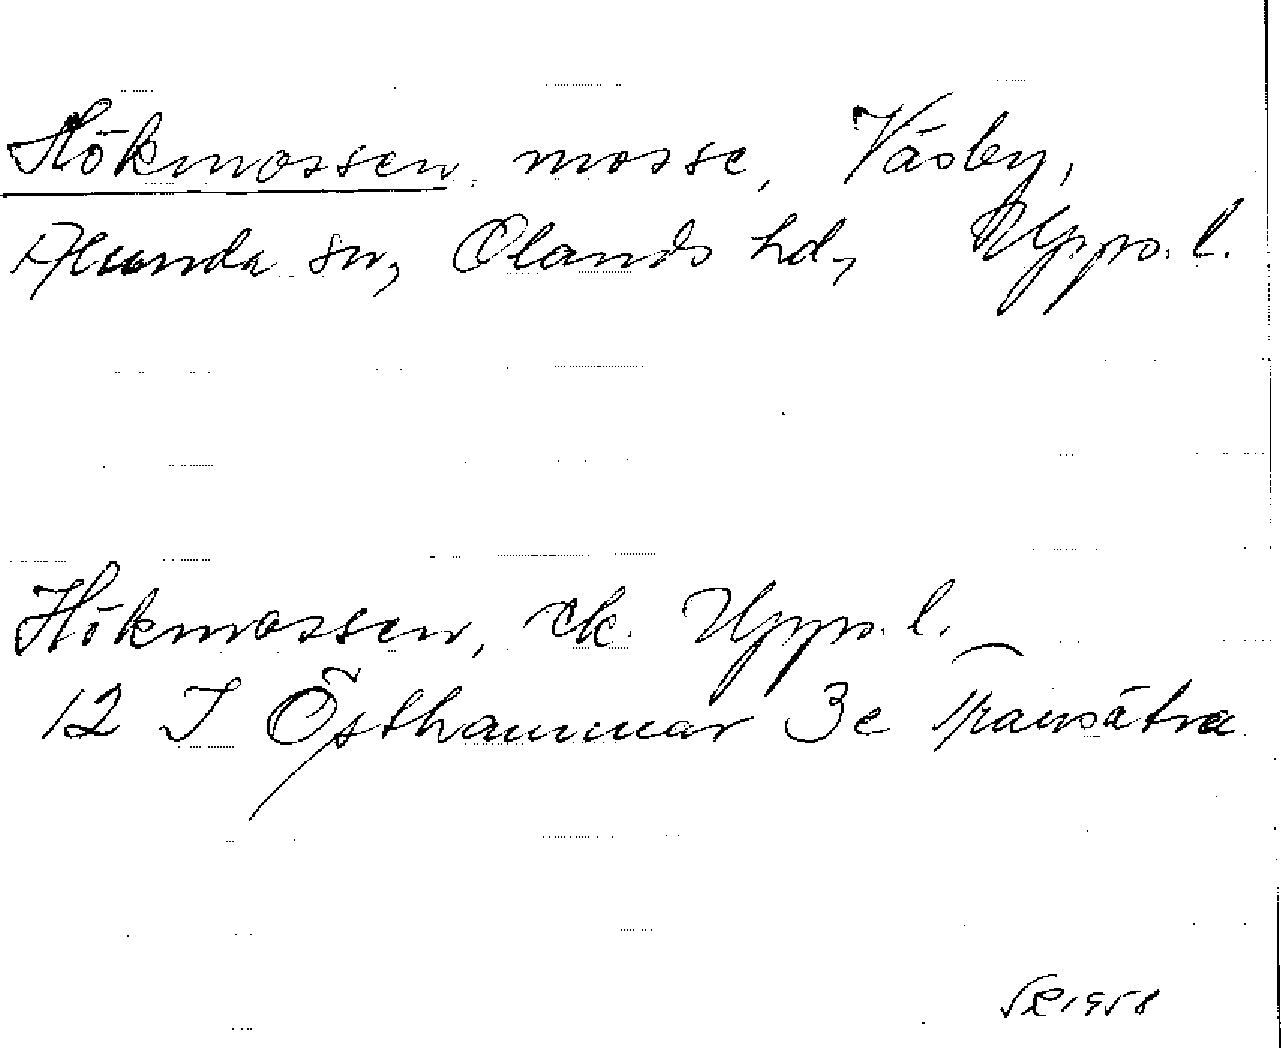 Hökmossen, mosse, Väsby,
Alunda sn, Olands hd, Upps. l.
Hökmossen, ek. Upps. l.
12 I Östhammar 3e Transätra
1958